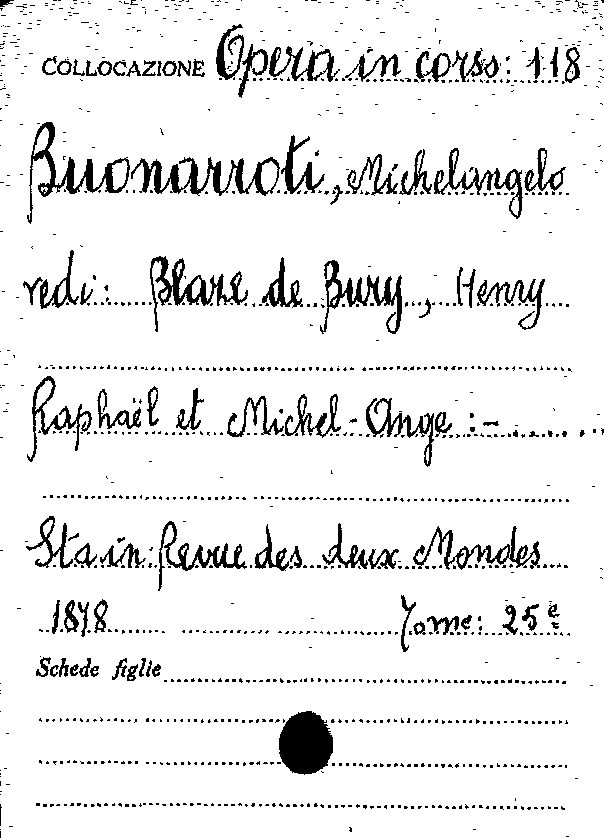 COLLOCAZIONE Opera in corso: 118
Buonarroti, Michelangelo
vedi: Blaze de Bury, Henry
Raphaël et Michel-Ange :- . . . . . .
Sta in: Revue des deux Mondes
1878 Tome: 25e
Schede figlie